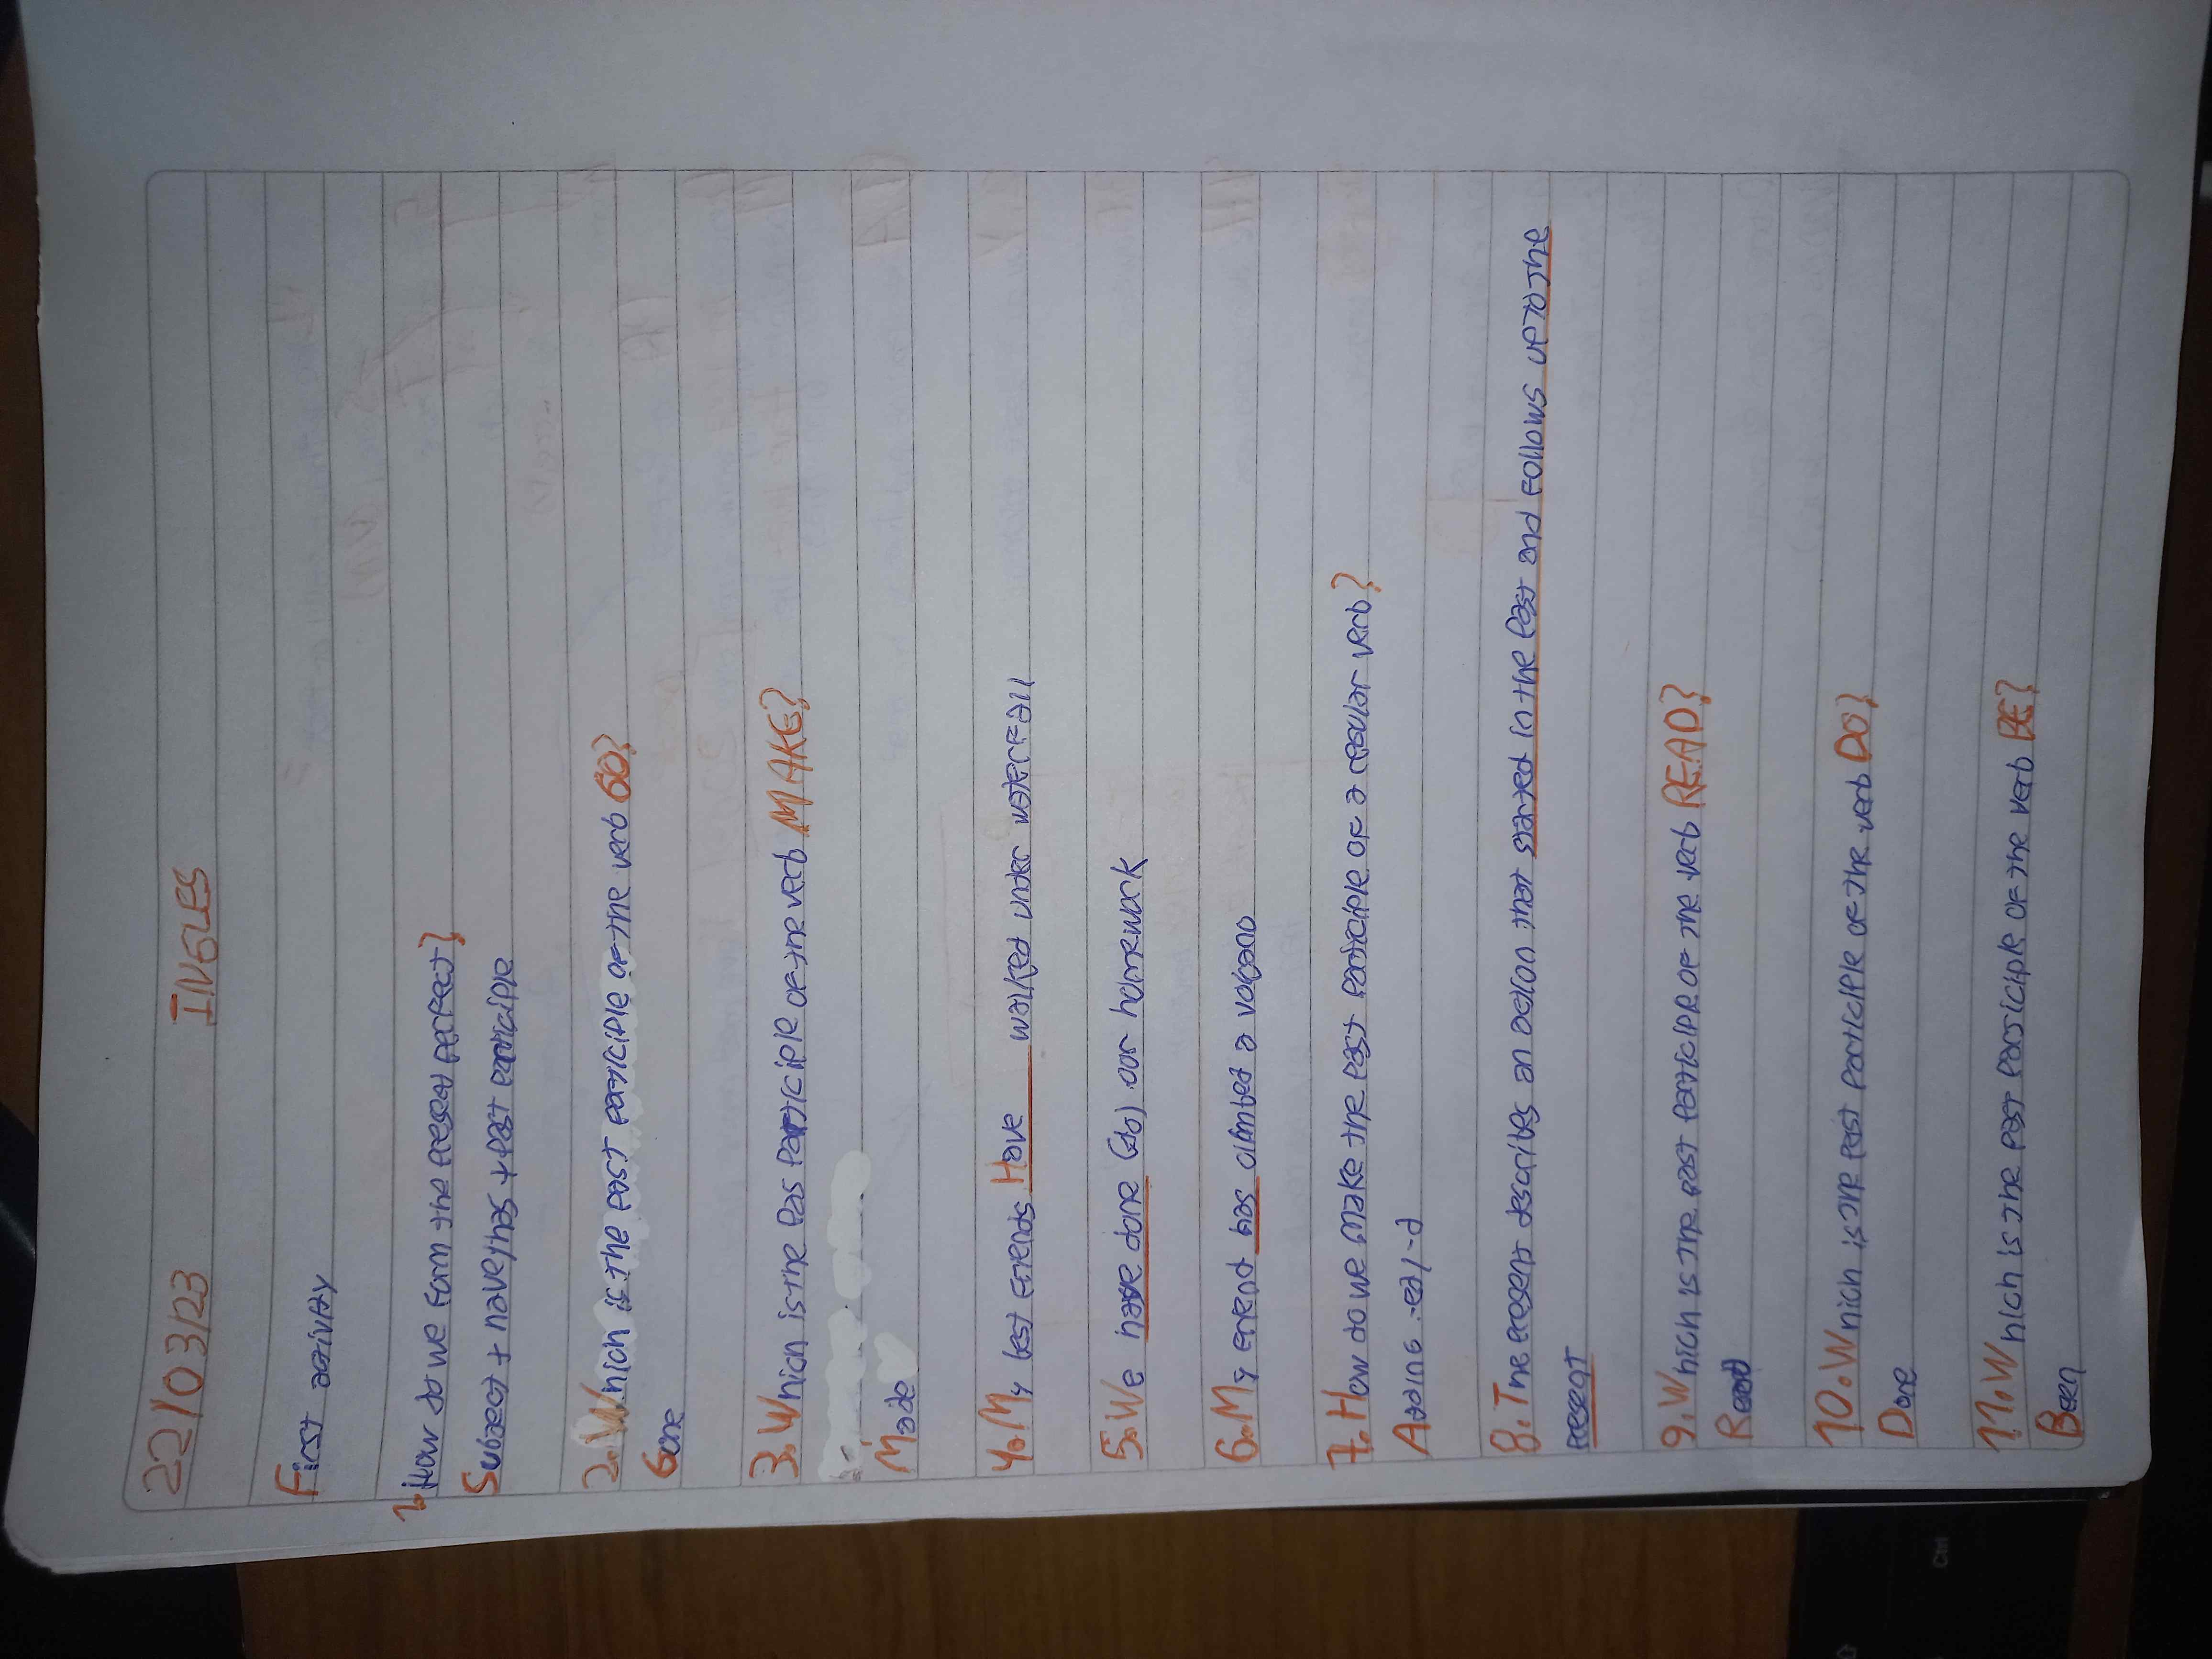 22/03/23 INGLES
First activity
1. How do we form the present perfect?
Subject + have/has + past participle
2. Which is the past participle of the verb GO?
Gone
3. Which is the pas participle of the verb MAKE?
Made
4. My best friends Have walked under waterfall
5. We have done (do) our homework
6. My friend has climbed a volcano
7. How do we make the past participle of a regular verb?
Adding :-ed/-d
8. The present describes an action that started in the past and follows the
present
9. Which is the past participle of the verb READ?
Read
10. Which is the past participle of the verb DO?
Done
11. Which is the past participle of the verb BE?
Been
Ctrl